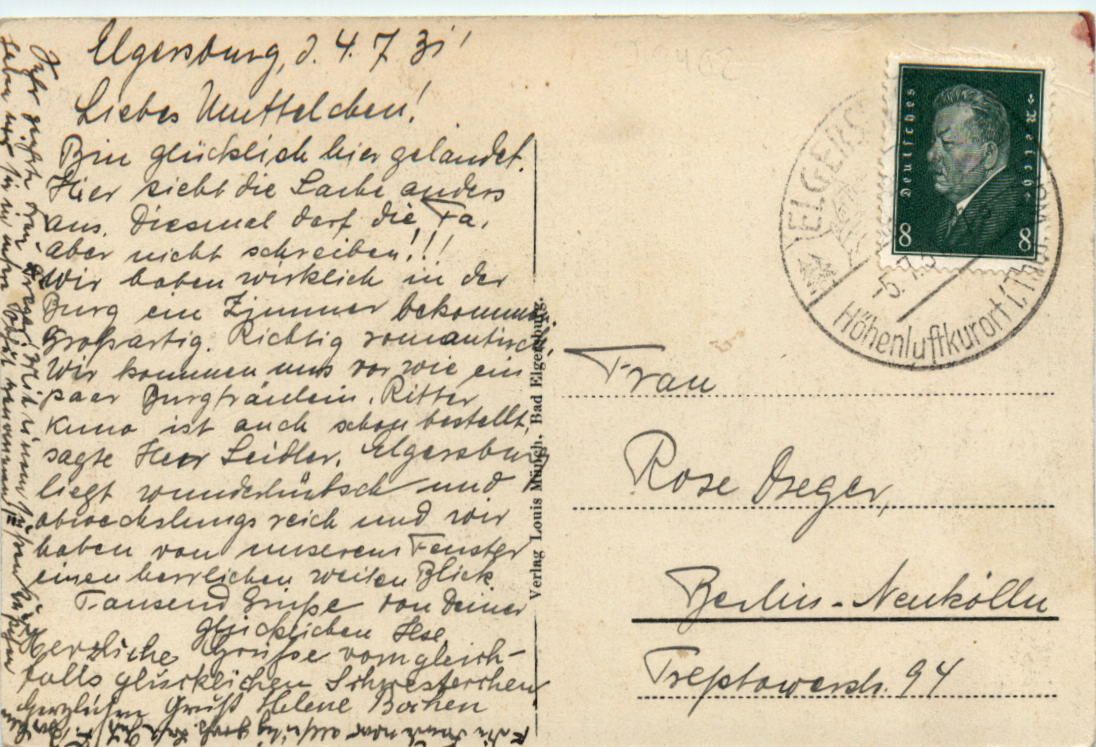 Elgersburg, d. 4. 7. 31
Liebes Muttelchen!
Bin glücklich hier gelandet.
Hier sieht die Sache anders
aus. Diesmal darf die Fa.
aber nicht schreiben!!!
Wir haben wirklich in der
Burg ein Zimmer bekommen.
Großartig. Richtig romantisch.
Wir kommen uns vor wie ein
paar Burgfräulein. Ritter
Kuno ist auch schon bestellt,
sagte Herr Seidler. Elgersburg
liegt wunderhübsch und
abwechslungsreich und wir
haben von unserem Fenster
einen herrlichen weiten Blick
Tausend Grüße von Deiner
glücklichen Ilse
Herzliche Grüße vom gleich-
falls glücklichen Schwesterchen
Herzlichen Gruß Helene
Sehr
Verlag Louis Münch, Bad Elgersburg.
Deutsches Reich
8 8
ELGERS
-5.7.3
Höhenluftkurort i. Thür.
Frau
Rose
Berlin-Neukölln
Treptowerstr. 94